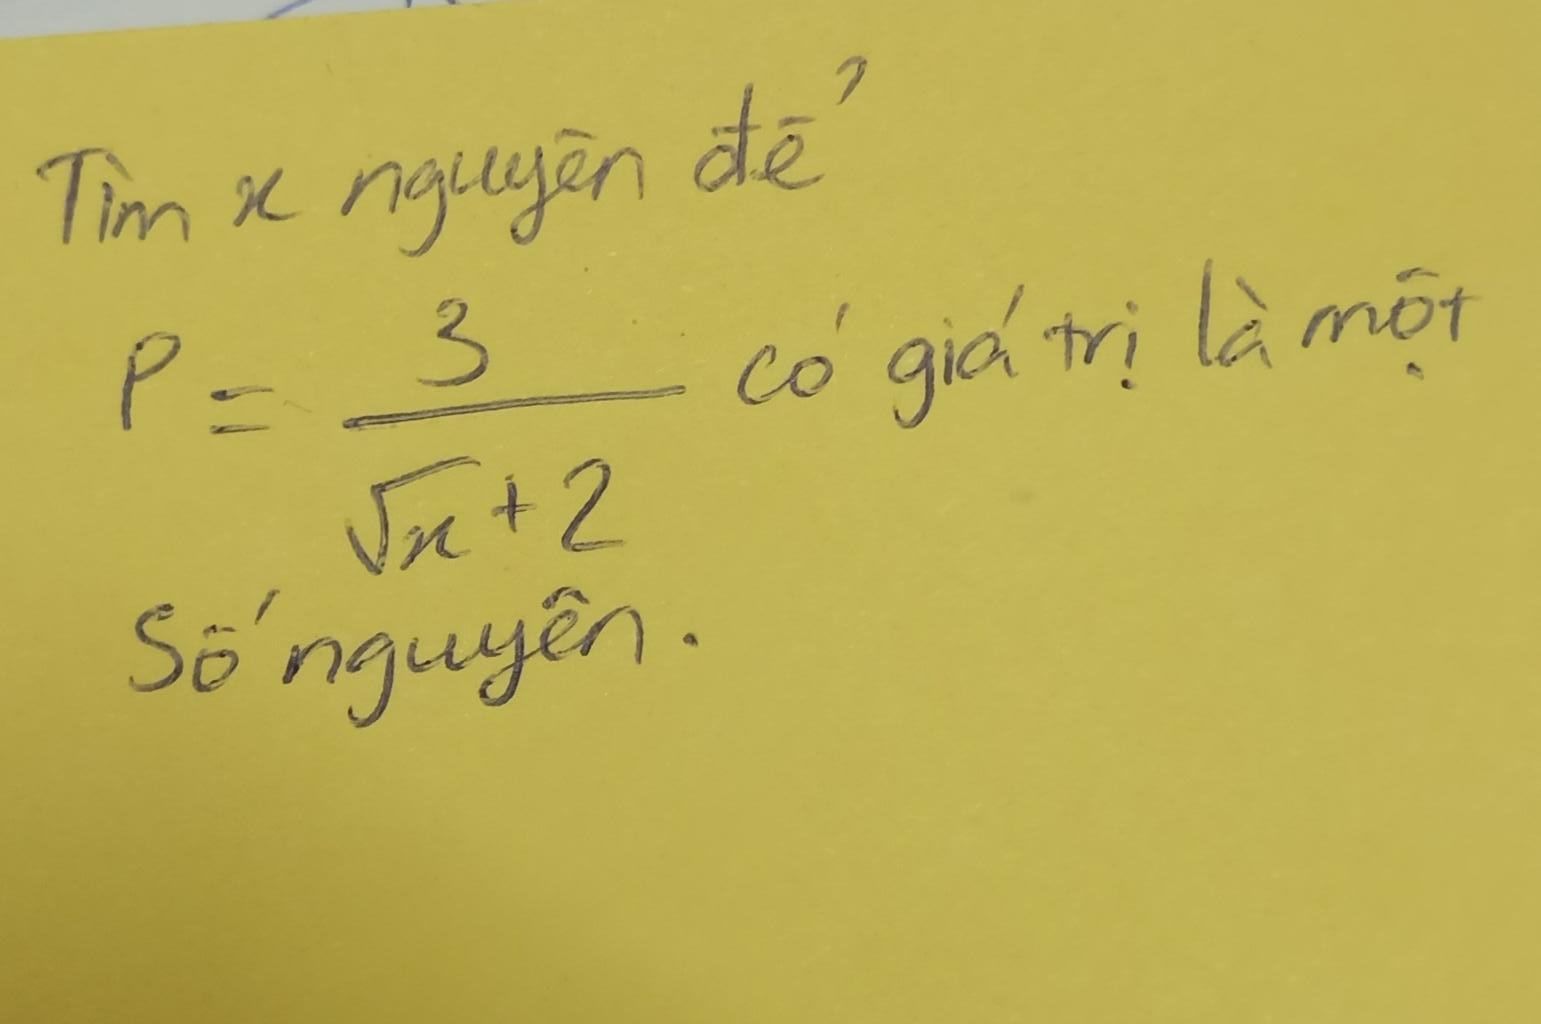 Tìm x nguyên để
P = 3/(√x + 2) có giá trị là một
Số nguyên.